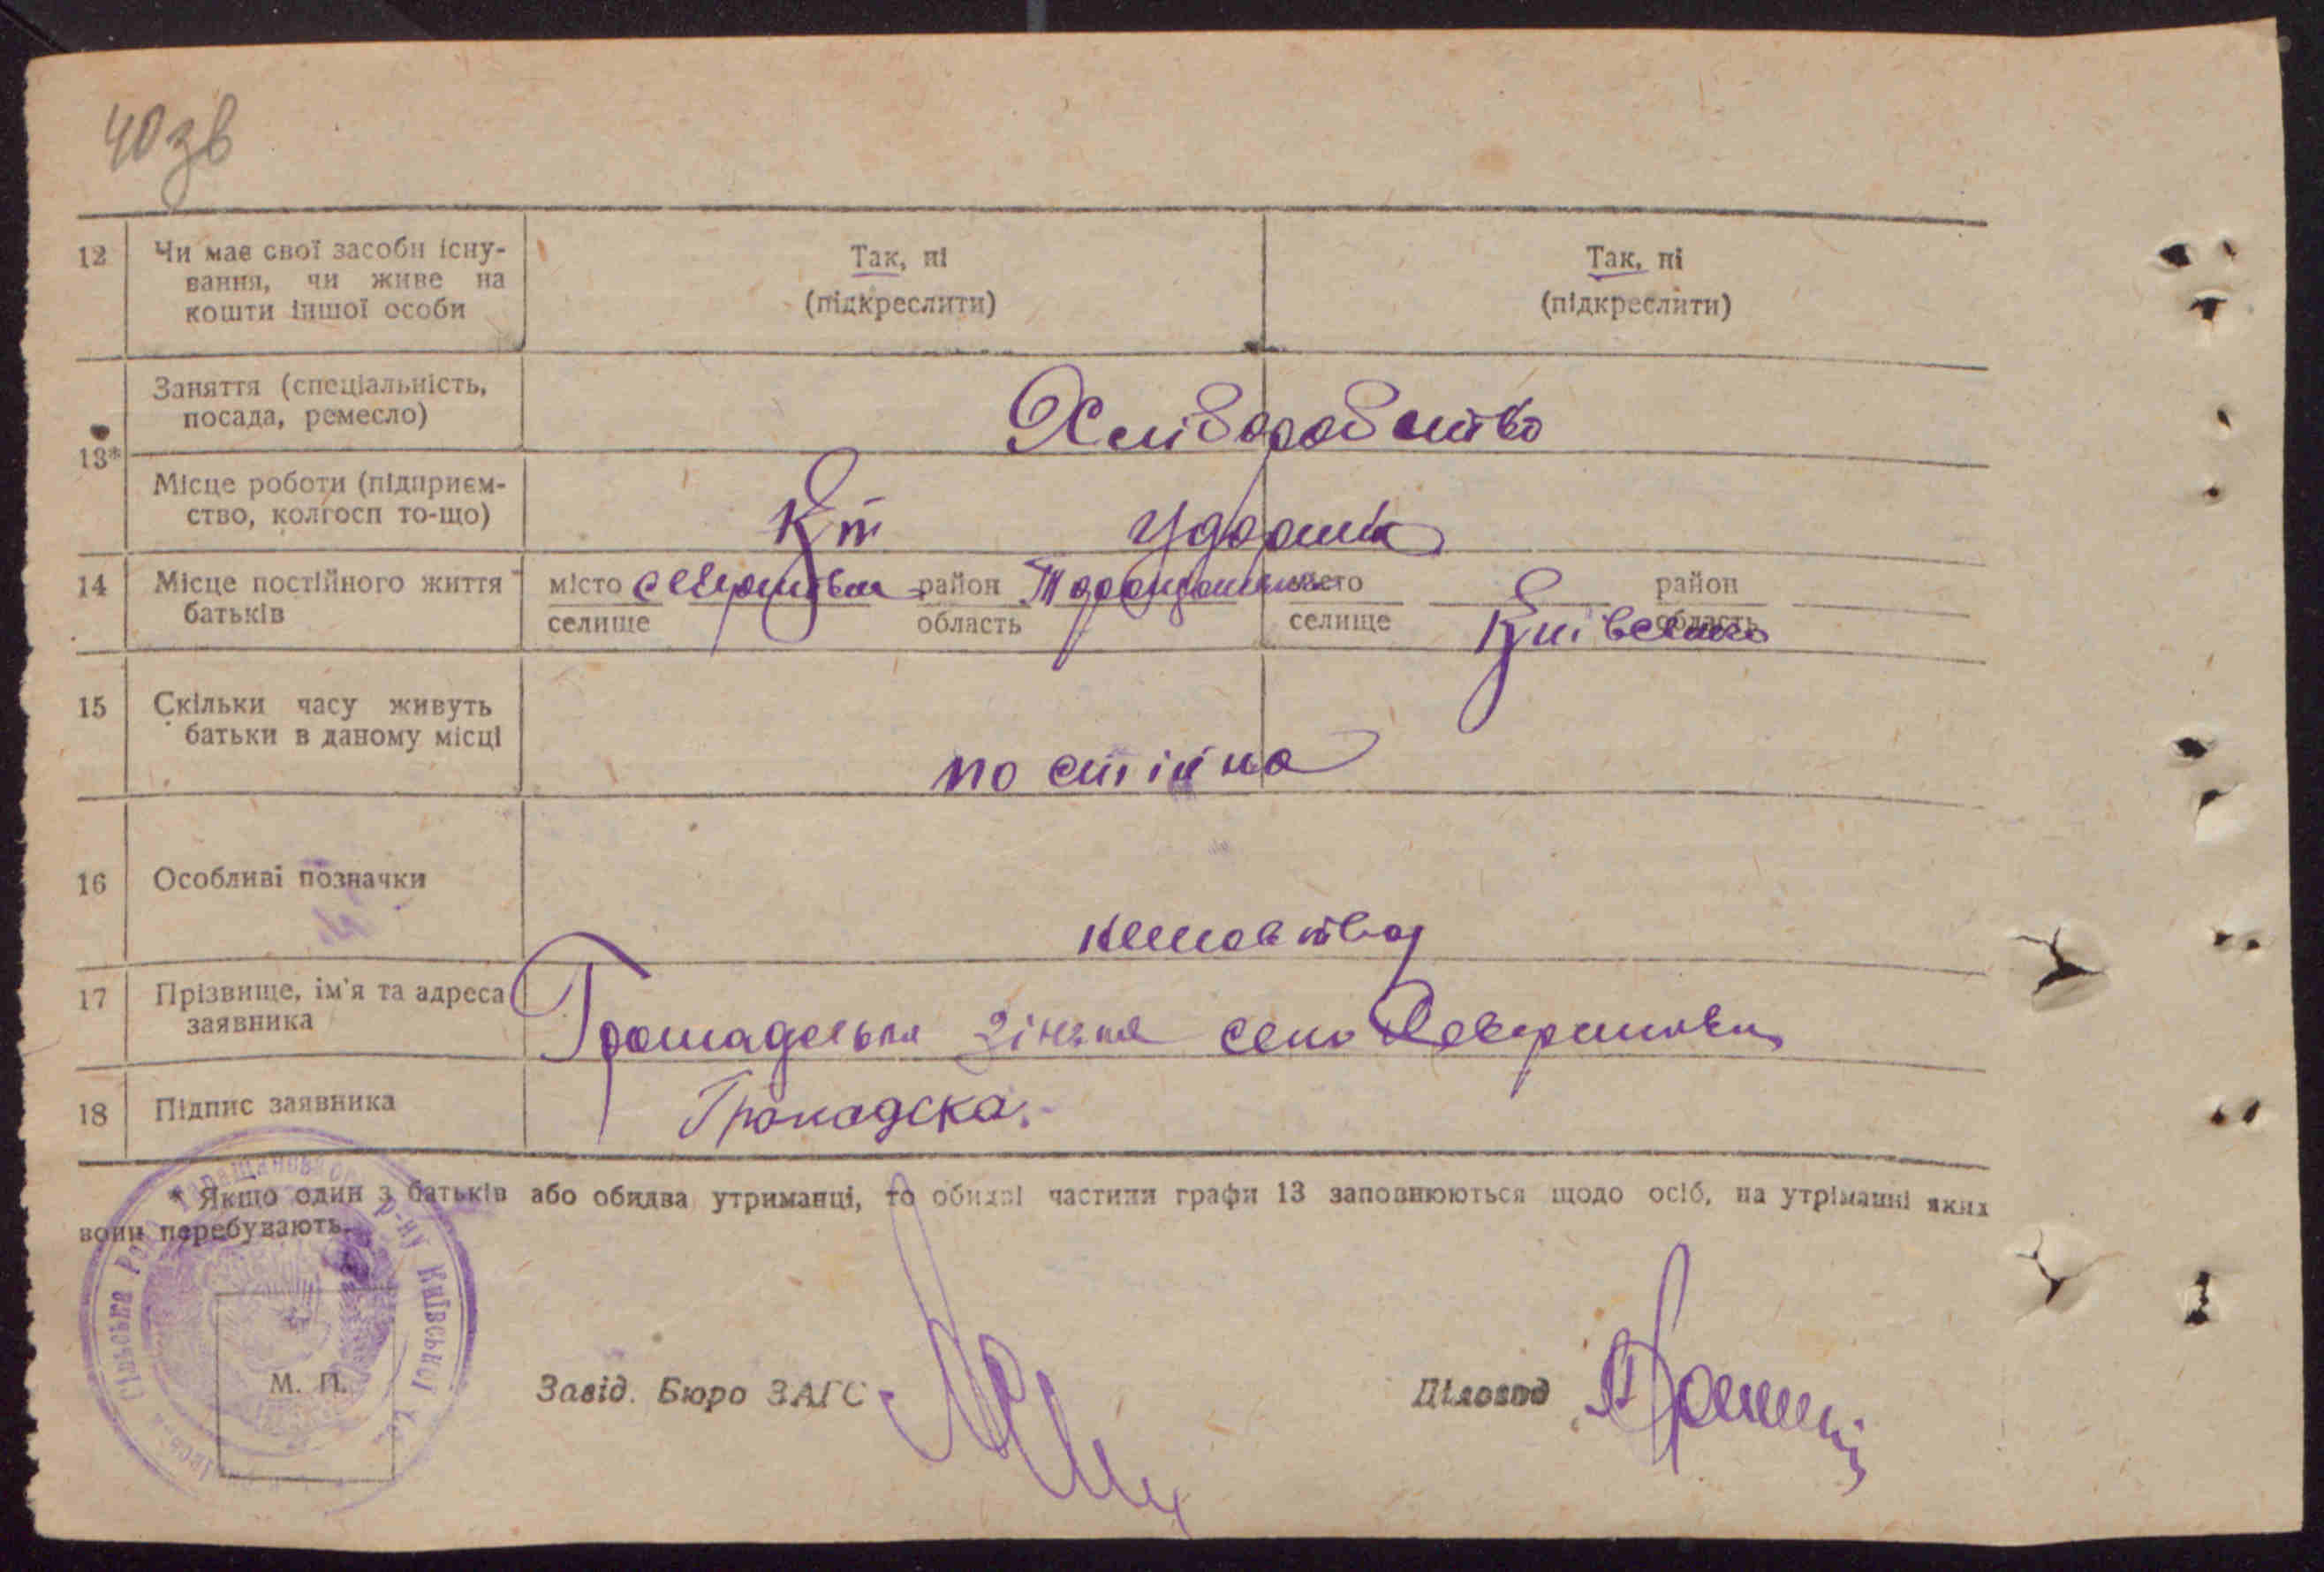 40 зв
12 Чи має свої засоби існу- Так, ні Так, ні
вання, чи живе на (підкреслити) (підкреслити)
кошти іншої особи
Заняття (спеціальність,
посада, ремесло) Хліборобство
13*
Місце роботи (підприєм-
ство, колгосп то-що) Кт Ударник
14 Місце постійного життя місто район місто район
батьків селище область селище Київсько область
15 Скільки часу живуть
батьки в даному місці
постійно
16 Особливі позначки
17 Прізвище, ім'я та адреса
заявника Громадська село
18 Підпис заявника Громадска.
* Якщо один з батьків або обидва утриманці, то обидві частини графи 13 заповнюються щодо осіб, на утріманні яких
вони перебувають.
Сільська Рада Таращанського р-ну Київської
М. П.
Завід. Бюро ЗАГС Діловод